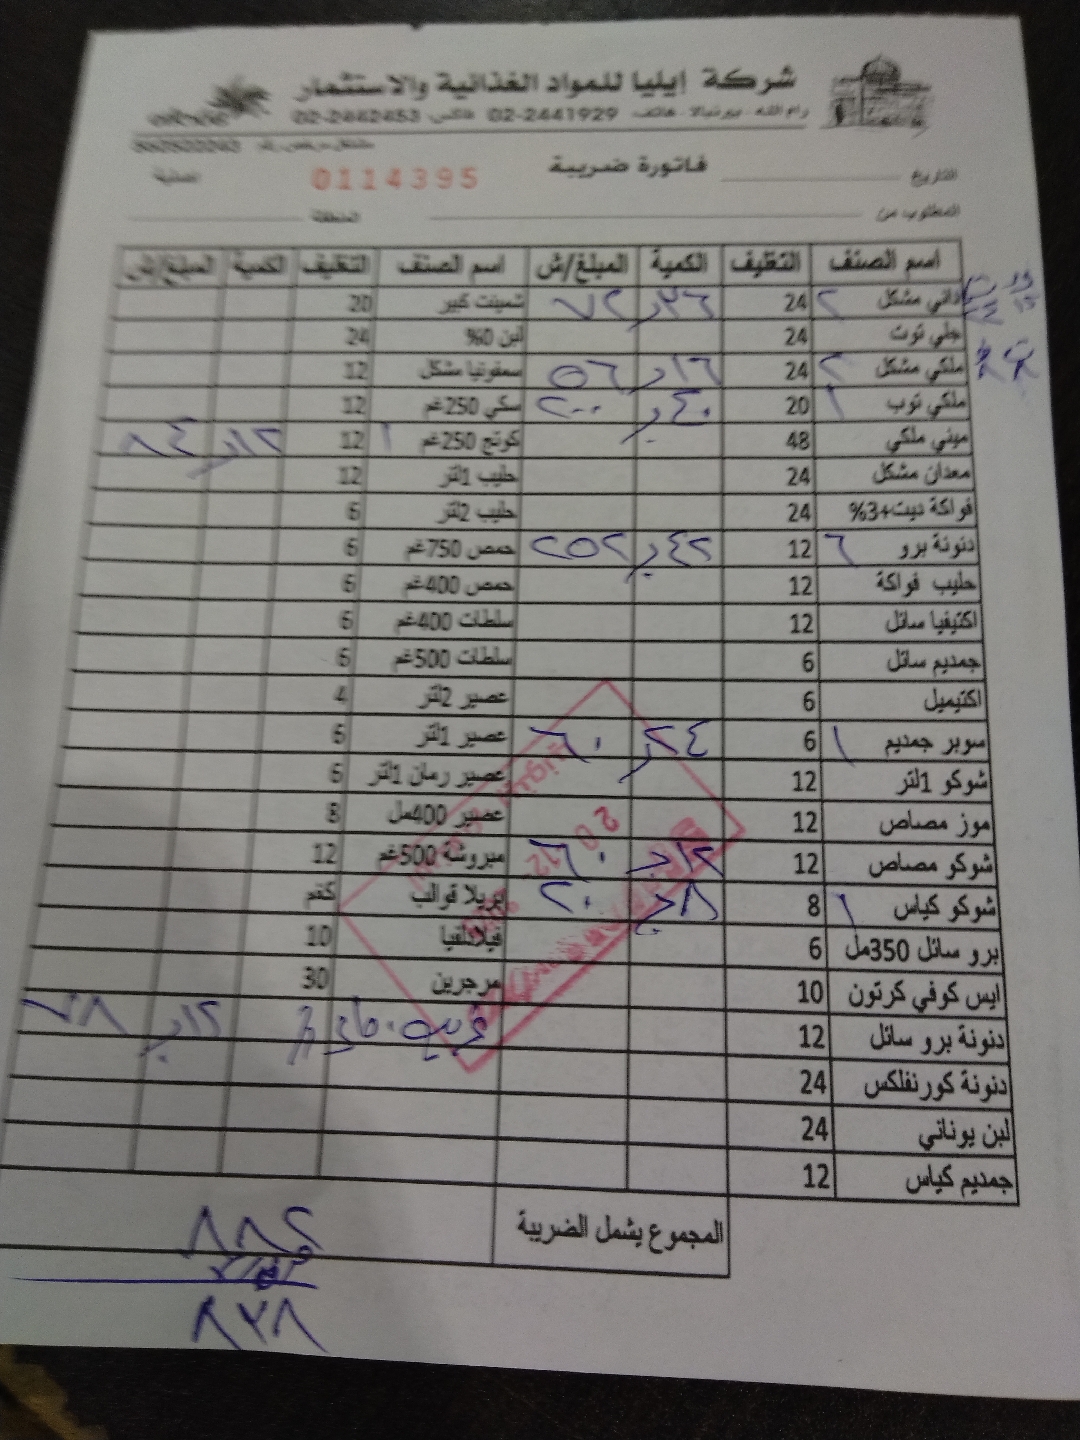 شركة إيليا للمواد الغذائية والاستثمار
رام الله - بيرنبالا - هاتف: 02-2441929 فاكس 02-2442453
فاتورة ضريبة
0114395
التاريخ
المطلوب من المنطقة
اسم الصنف التغليف الكمية المبلغ/ش اسم الصنف التغليف الكمية المبلغ/ش
داني مشكل ٢ 24 ٣٦ ٧٢ شمينت كبير 20
جلي توت 24 لبن 0% 24
ملكي مشكل ٢ 24 ١٦ ٥٦ سمفونيا مشكل 12
ملكي توب ١ 20 ٤٠ ٢٠٠ سكي 250غم 12
ميني ملكي 48 كوتج 250غم ١ 12 ١٢ ٨٤
معدان مشكل 24 حليب 1لتر 12
فواكة ديت+3% 24 حليب 2لتر 6
دنونة برو ٦ 12 ٤٢ ٢٥٢ حمص 750غم 6
حليب فواكة 12 حمص 400غم 6
اكتيفيا سائل 12 سلطات 400غم 6
جمديم سائل 6 سلطات 500غم 6
اكتيميل 6 عصير 2لتر 4
سوبر جمديم ١ 6 ٢٤ ٦٠ عصير 1لتر 6
شوكو 1لتر 12 عصير رمان 1لتر 6
موز مصاص 12 عصير 400مل 8
شوكو مصاص 12 ١٢ ٦٠ مبروشة 500غم 12
شوكو كياس ١ 8 ٨ ٢٠ بريلا قوالب كغم
برو سائل 350مل 6 فيلادلفيا 10
ايس كوفي كرتون 10 مرجرين 30
دنونة برو سائل 12 ١٢ ٧٨
دنونة كورنفلكس 24
لبن يوناني 24
جمديم كياس 12
المجموع يشمل الضريبة ٨٨٢
٨٣٨